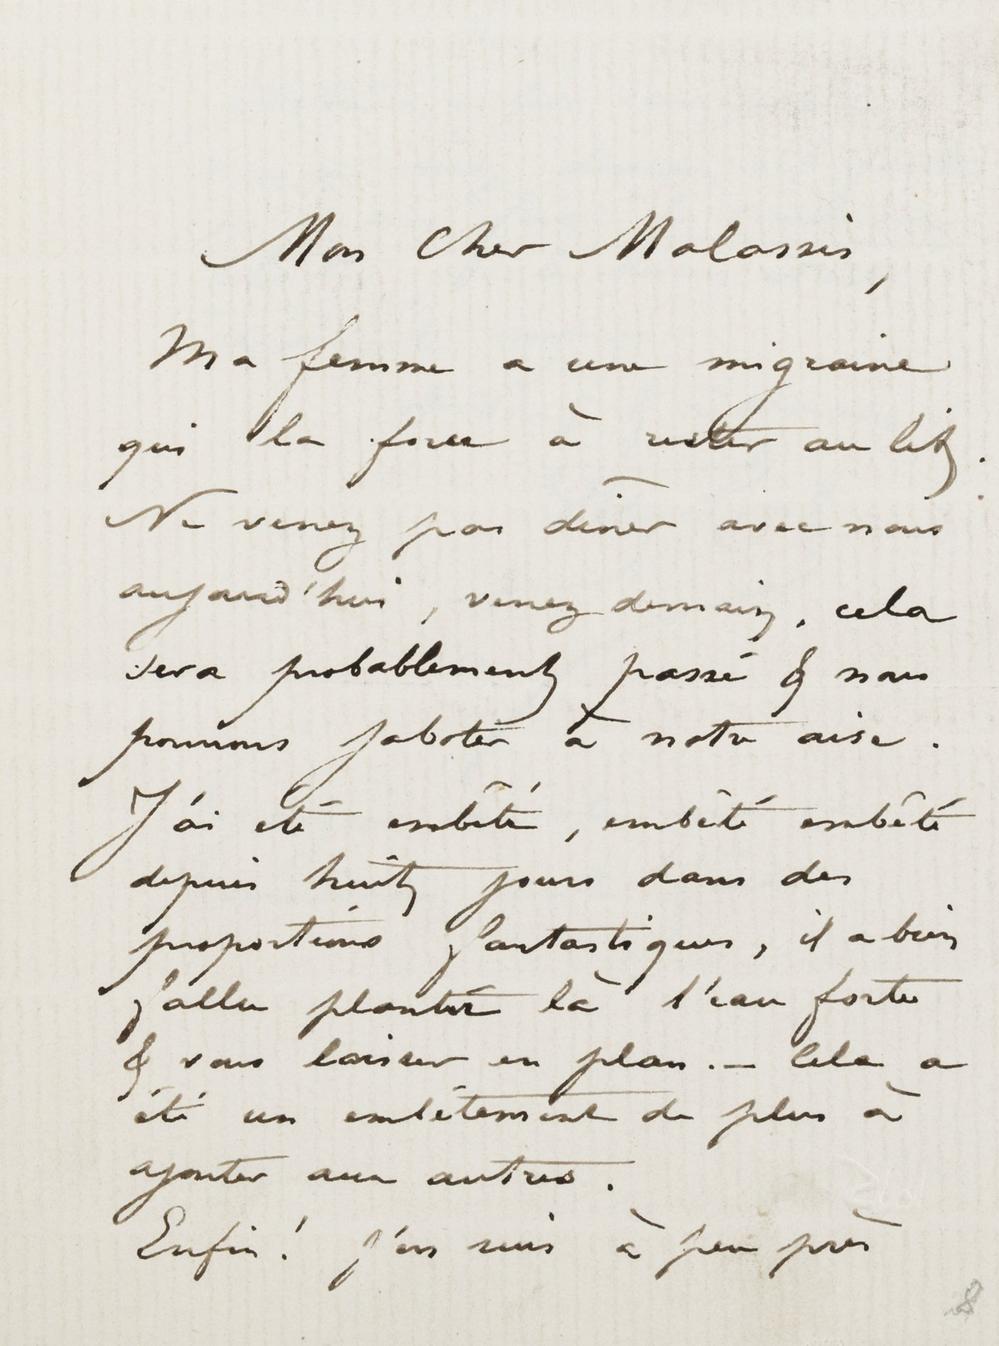 Mon Cher Malassis,
Ma femme a une migraine
qui la force à rester au lit.
Ne venez pas dîner avec nous
aujourd'hui, venez demain, cela
sera probablement passé & nous
pourrons jaboter à notre aise.
J'ai été embêté, embêté embêté
depuis huit jours dans des
proportions fantastiques, il a bien
fallu planter là l'eau forte
& vous laisser en plan. — Cela a
été un embêtement de plus à
ajouter aux autres.
Enfin! j'en suis à peu près
8